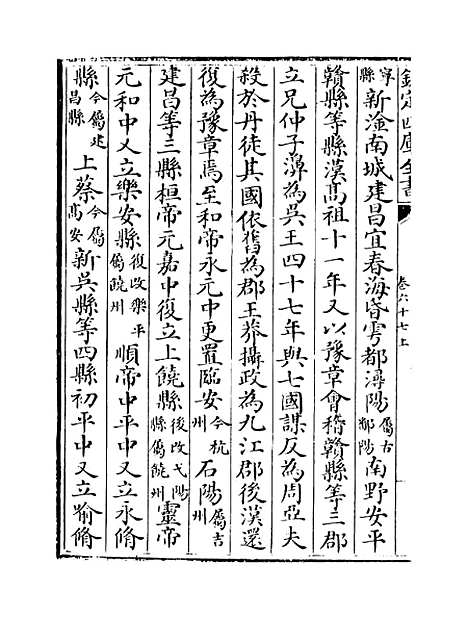 欽定四庫全書
卷六十七上
寧縣新淦南城建昌宜春海昏雩都潯陽屬古鄱陽南野安平
贛縣等縣漢高祖十一年又以豫章會稽贛縣等三郡
立兄仲子濞為吳王四十七年與七國謀反為周亞夫
殺於丹徒其國依舊為郡王莽攝政為九江郡後漢還
復為豫章焉至和帝永元中更置臨安今杭州石陽屬吉州
建昌等三縣桓帝元嘉中復立上饒縣後改弋陽縣屬饒州靈帝
元和中又立樂安縣復改樂平屬饒州順帝中平中又立永脩
縣今屬建昌縣上蔡今屬高安新吳縣等四縣初平中又立喻脩